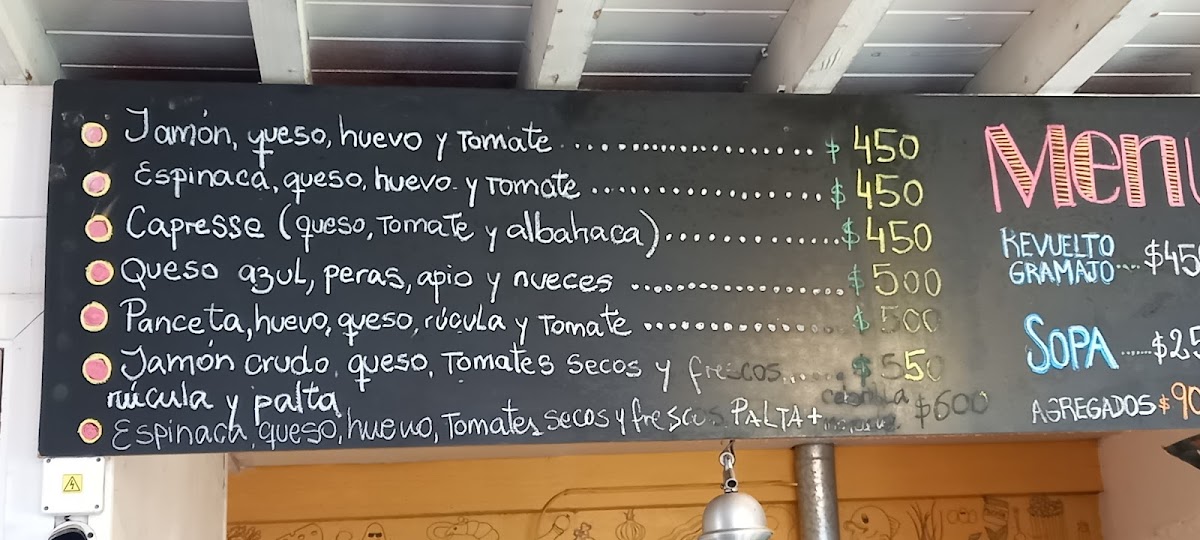 Jamón, queso, huevo y Tomate.................. $ 450
Espinaca, queso, huevo y Tomate.................. $ 450
Capresse (queso, Tomate y albahaca)..................$ 450
Queso azul, peras, apio y nueces.................. $ 500
Panceta, huevo, queso, rúcula y Tomate.................. $ 500
Jamón crudo, queso, Tomates secos y frescos...... $ 550
rúcula y palta
Espinaca, queso, huevo, Tomates secos y frescos PALTA+ $600
Menu
REVUELTO
GRAMAJO.... $450
SOPA ...... $25
AGREGADOS $90